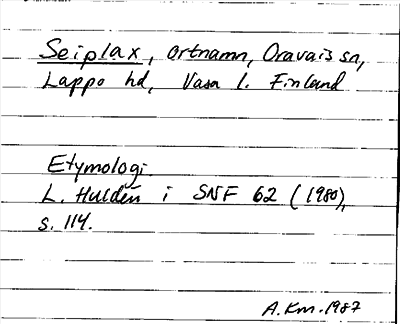 Seiplax, ortnamn, Oravais sn,
Lappo hd, Vasa l. Finland
Etymologi
L. Huldén i SNF 62 (1980),
s. 114.
A.Km.1987